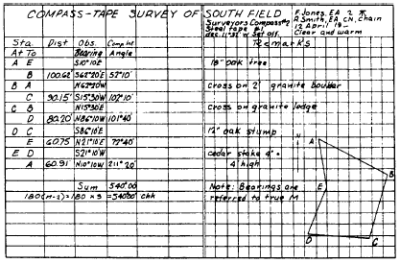 COMPASS-TAPE SURVEY OF SOUTH FIELD
F Jones, EA
A Smith, EA CH, Chain
12 April 19--
Clear and warm
Surveyors Compass #2
Steel tape #1
dec 11°31' W Set off.
Sta. Dist Obs. Comp int Remarks
At To Bearing Angle
A E S10°10'E 18" oak tree
B 100.62' S62°20'E 52°10'
B A N62°20W cross on 2' granite boulder
C 90.15' S15°30W 102°10'
C B N15°30E cross on granite ledge
D 80.20' N86°10W 101°40'
D C S86°10'E 12" oak stump
E 60.75 N21°10E 72°40'
E D S21°10W cedar stake 4" ×
A 60.91 N10°10W 211°20' 4' high
Sum 540°00' Note: Bearings are
180(n-2)=180 × 3 = 540°00' chk referred to true M
A
B
E
D
C